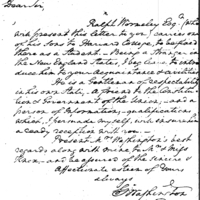 Dear Sir,
Ralph Wormeley Esqr. (who
will present this letter to you) carries one
of his Sons to Harvard College, to be placed
there as a Student. Being a Stranger in
the New England States, I beg leave to introduce
him to your acquaintance & civilities
He is a Gentleman of respectability
in his own State, a friend to the Constitution
& Government of the Union, and a
person of information, qualifications
which I persuade myself, will ensure him
a ready reception with you.
Present Mrs. Washington's best
regards along with mine to Mrs. & Miss
Knox, and be assured of the sincere &
affectionate esteem of Yours
always
G. Washington